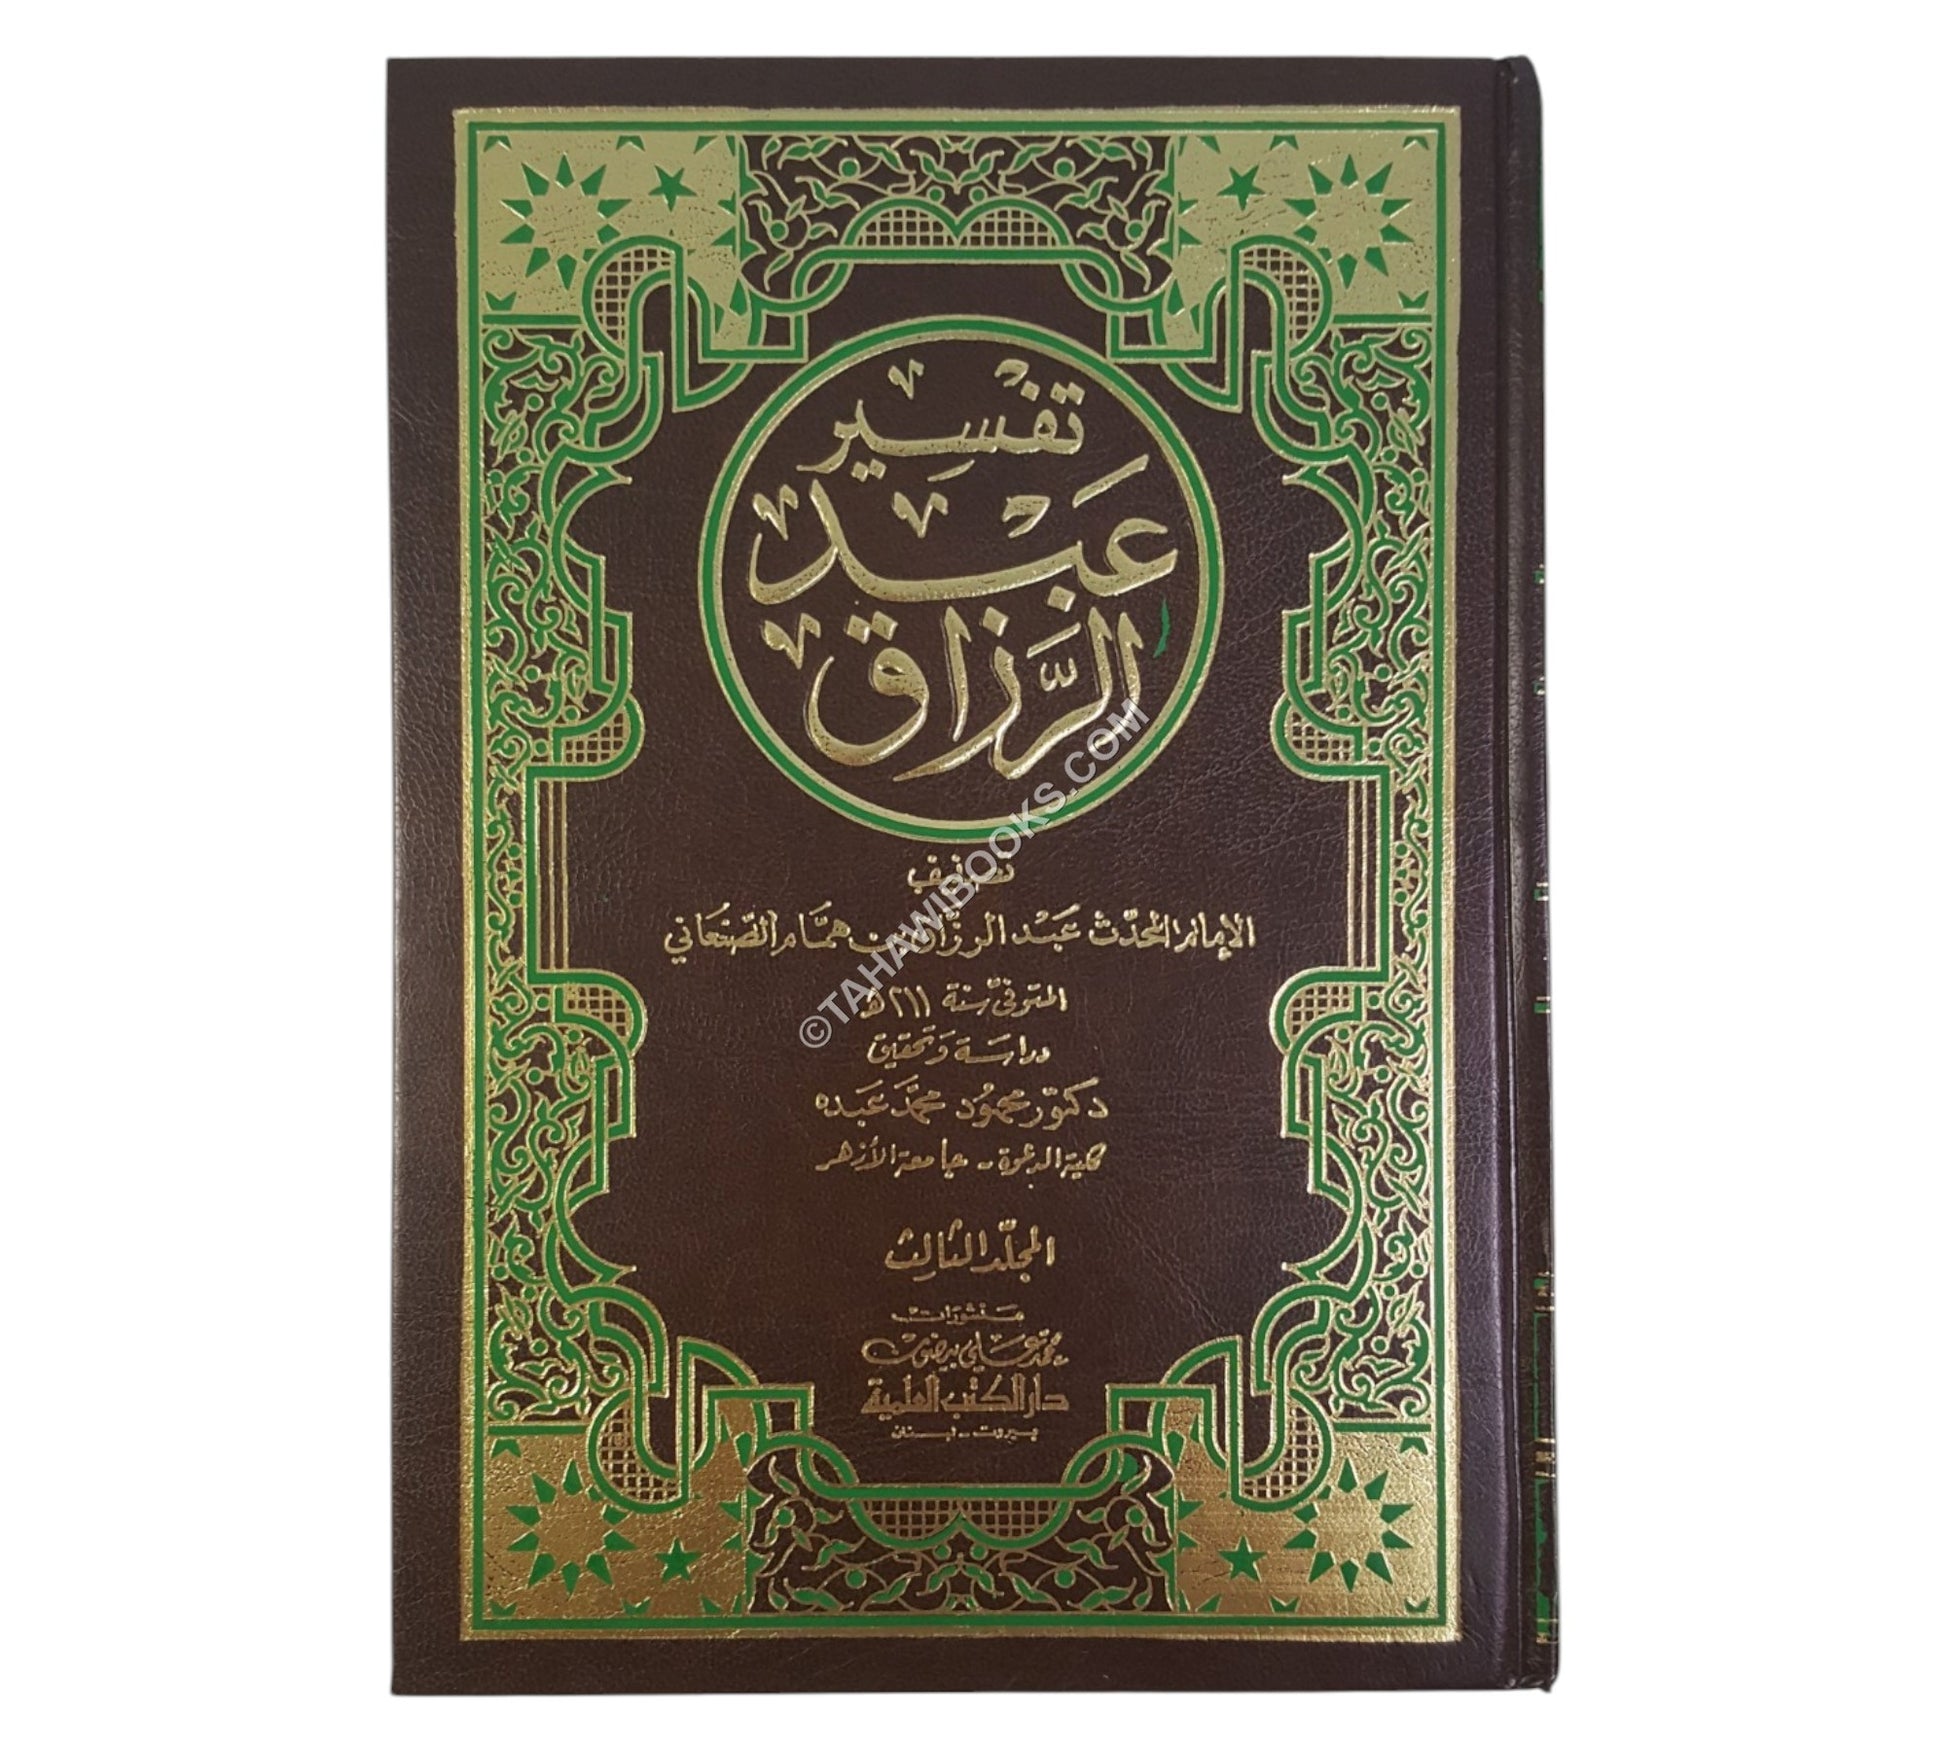 تفسير
عبد
الرزاق
تصنيف
الإمام المحدث عبد الرزاق بن همام الصنعاني
المتوفى سنة ٢١١ هـ
دراسة وتحقيق
دكتور محمود محمد عبده
كلية الدعوة - جامعة الأزهر
المجلد الثالث
منشورات
محمد علي بيضون
دار الكتب العلمية
بيروت - لبنان
©TAHAWIBOOKS.COM